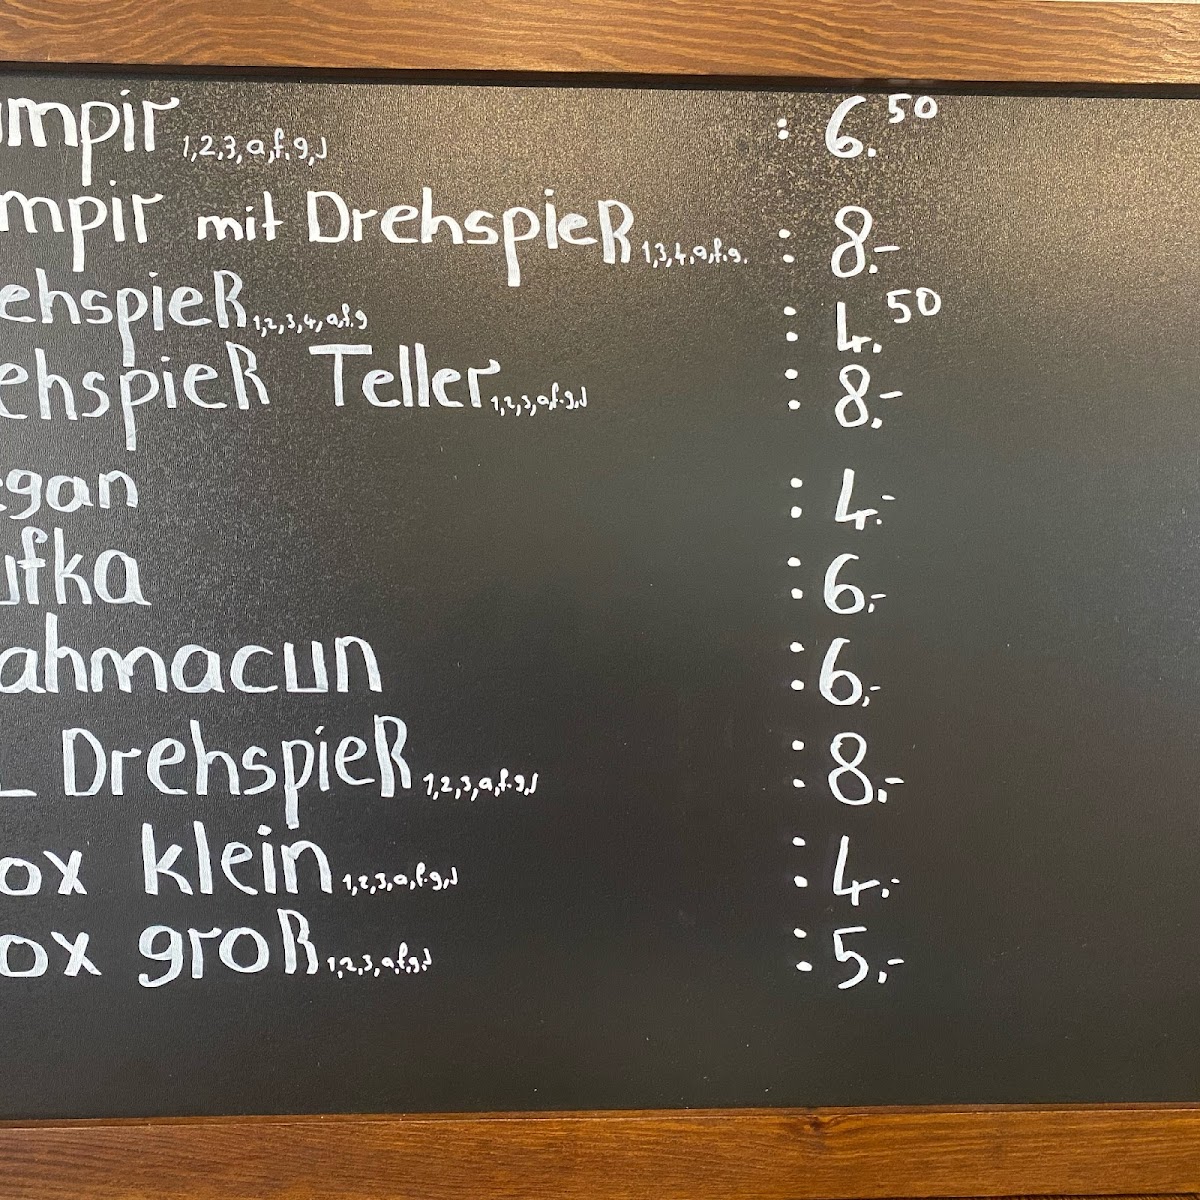 umpir 1,2,3,a,f,g,J : 6.50
mpir mit Drehspieß 1,3,4,a,f,g. : 8.-
ehspieß 1,2,3,4,a,f,g : 4.50
ehspieß Teller 1,2,3,a,f,g,J : 8.-
egan : 4.-
ufka : 6.-
ahmacun : 6.-
L Drehspieß 1,2,3,a,f,g,J : 8.-
ox klein 1,2,3,a,f,g,J : 4.-
ox groß 1,2,3,a,f,g,J : 5.-